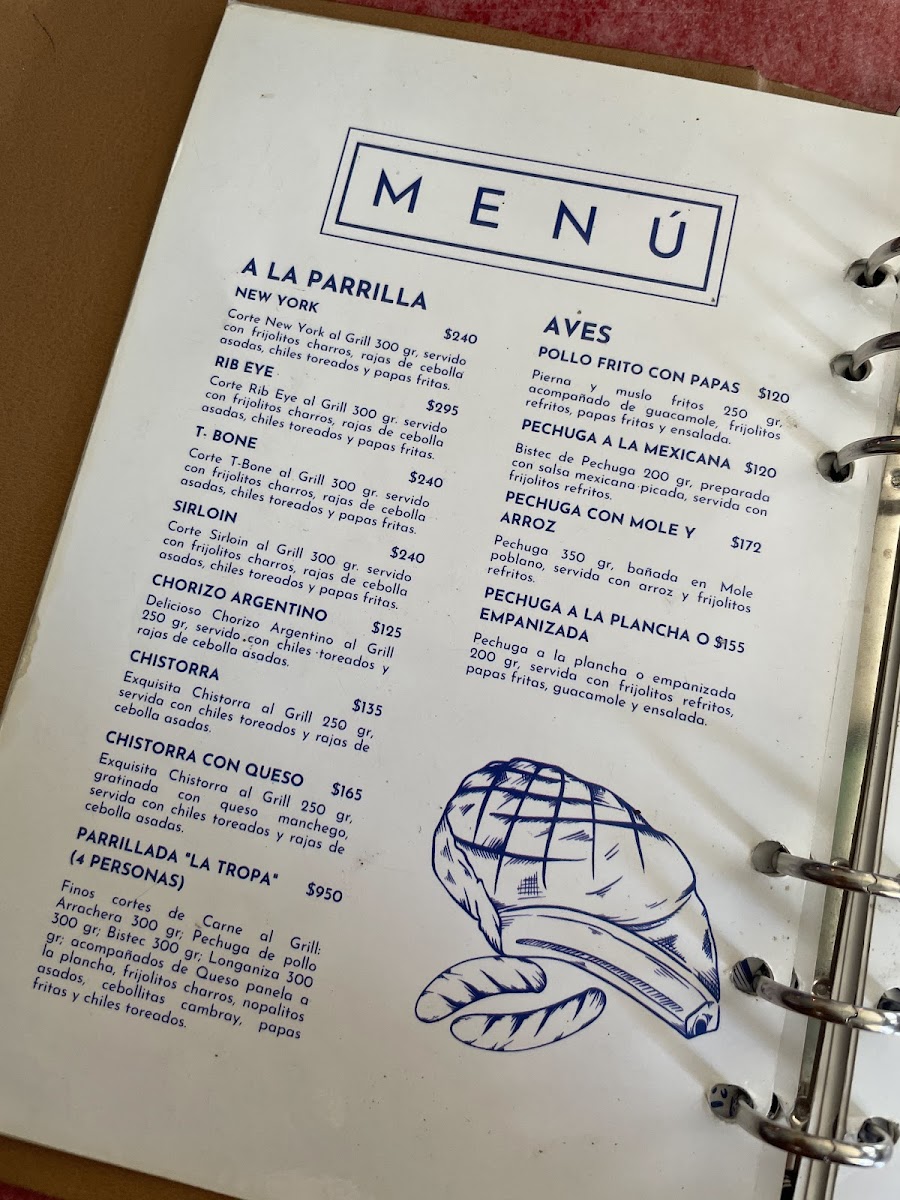 MENÚ
A LA PARRILLA
NEW YORK
$240
Corte New York al Grill 300 gr, servido
con frijolitos charros, rajas de cebolla
asadas, chiles toreados y papas fritas.
RIB EYE
$295
Corte Rib Eye al Grill 300 gr. servido
con frijolitos charros, rajas de cebolla
asadas, chiles toreados y papas fritas.
T. BONE
$240
Corte T-Bone al Grill 300 gr. servido
con frijolitos charros, rajas de cebolla
asadas, chiles toreados y papas fritas.
SIRLOIN
$240
Corte Sirloin al Grill 300 gr. servido
con frijolitos charros, rajas de cebolla
asadas, chiles toreados y papas fritas.
CHORIZO ARGENTINO
$125
Delicioso Chorizo Argentino al Grill
250 gr, servido con chiles toreados y
rajas de cebolla asadas.
CHISTORRA
$135
Exquisita Chistorra al Grill 250 gr,
servida con chiles toreados y rajas de
cebolla asadas.
CHISTORRA CON QUESO
$165
Exquisita Chistorra al Grill 250 gr,
gratinada con queso manchego,
servida con chiles toreados y rajas de
cebolla asadas.
PARRILLADA "LA TROPA"
(4 PERSONAS)
$950
Finos cortes de Carne al Grill:
Arrachera 300 gr; Pechuga de pollo
300 gr; Bistec 300 gr; Longaniza 300
gr; acompañados de Queso panela a
la plancha, frijolitos charros, nopalitos
asados, cebollitas cambray, papas
fritas y chiles toreados.
AVES
POLLO FRITO CON PAPAS $120
Pierna y muslo fritos 250 gr,
acompañado de guacamole, frijolitos
refritos, papas fritas y ensalada.
PECHUGA A LA MEXICANA $120
Bistec de Pechuga 200 gr, preparada
con salsa mexicana picada, servida con
frijolitos refritos.
PECHUGA CON MOLE Y
ARROZ
$172
Pechuga 350 gr, bañada en Mole
poblano, servida con arroz y frijolitos
refritos.
PECHUGA A LA PLANCHA O $155
EMPANIZADA
Pechuga a la plancha o empanizada
200 gr, servida con frijolitos refritos,
papas fritas, guacamole y ensalada.